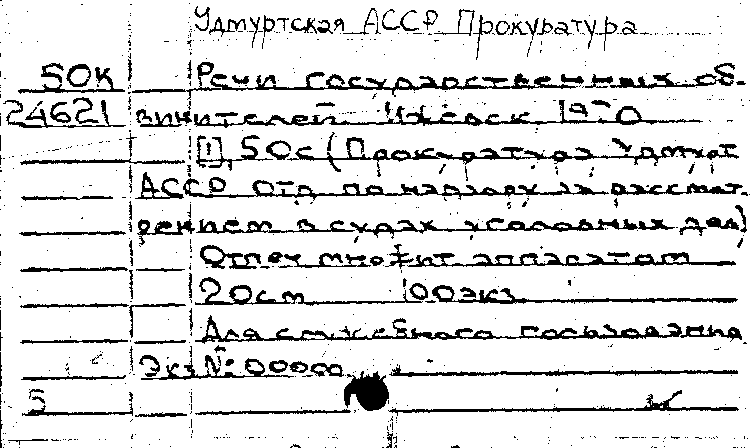 Удмуртская АССР Прокуратура
50К Речи государственных об-
24621 винителей. Ижевск 1970
[1], 50с (Прокуратура Удмурт
АССР Отд по надзору за рассмот
рением в судах уголовных дел)
Отпеч множит аппаратом
20см 100экз
Для служебного пользования
Экз №: 00000
5